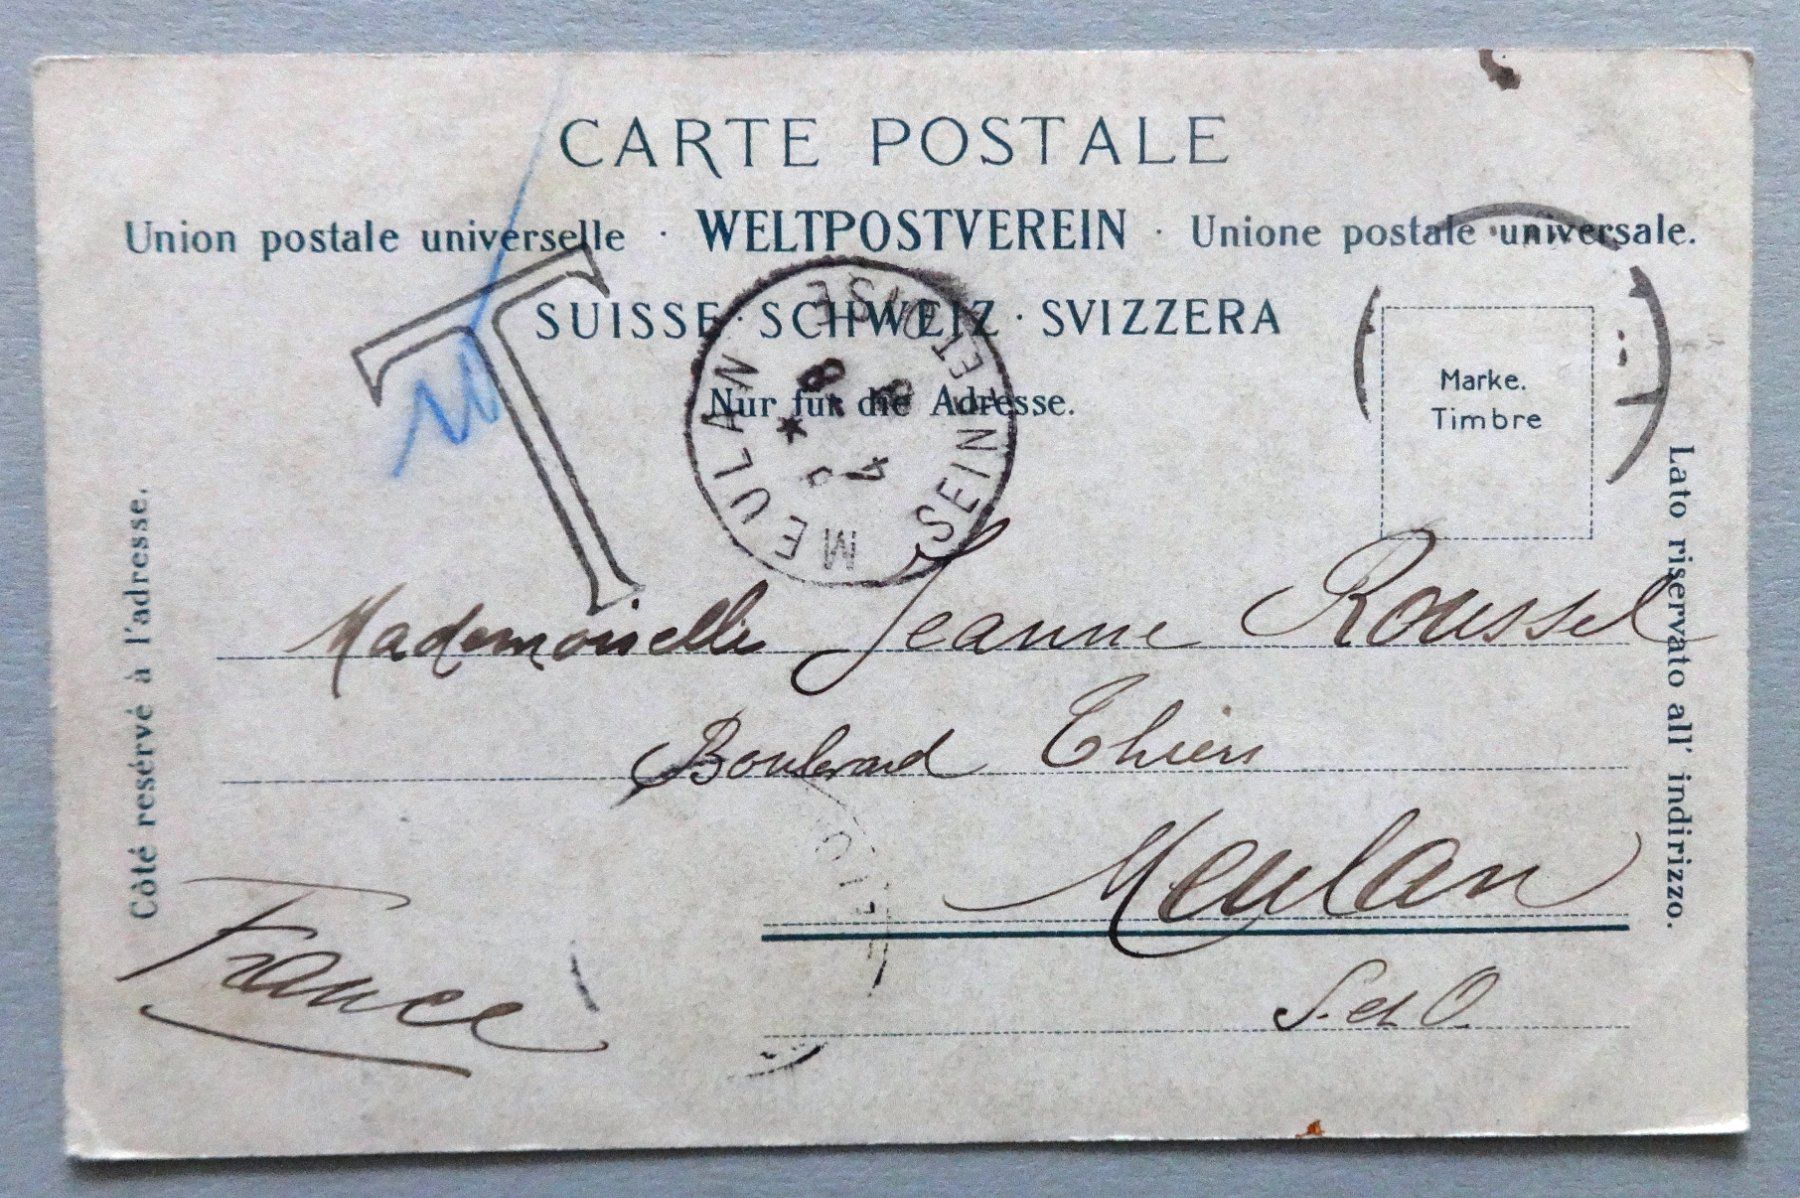 CARTE POSTALE
Union postale universelle · WELTPOSTVEREIN · Unione postale universale.
SUISSE · SCHWEIZ · SVIZZERA
Nur für die Adresse.
Marke.
Timbre
T
MEULAN
SEINE ET OISE
Mademoiselle Jeanne Roussel
Boulevard Thiers
Meulan
S. et O.
France
Côté resérvé à l'adresse.
Lato riservato all' indirizzo.